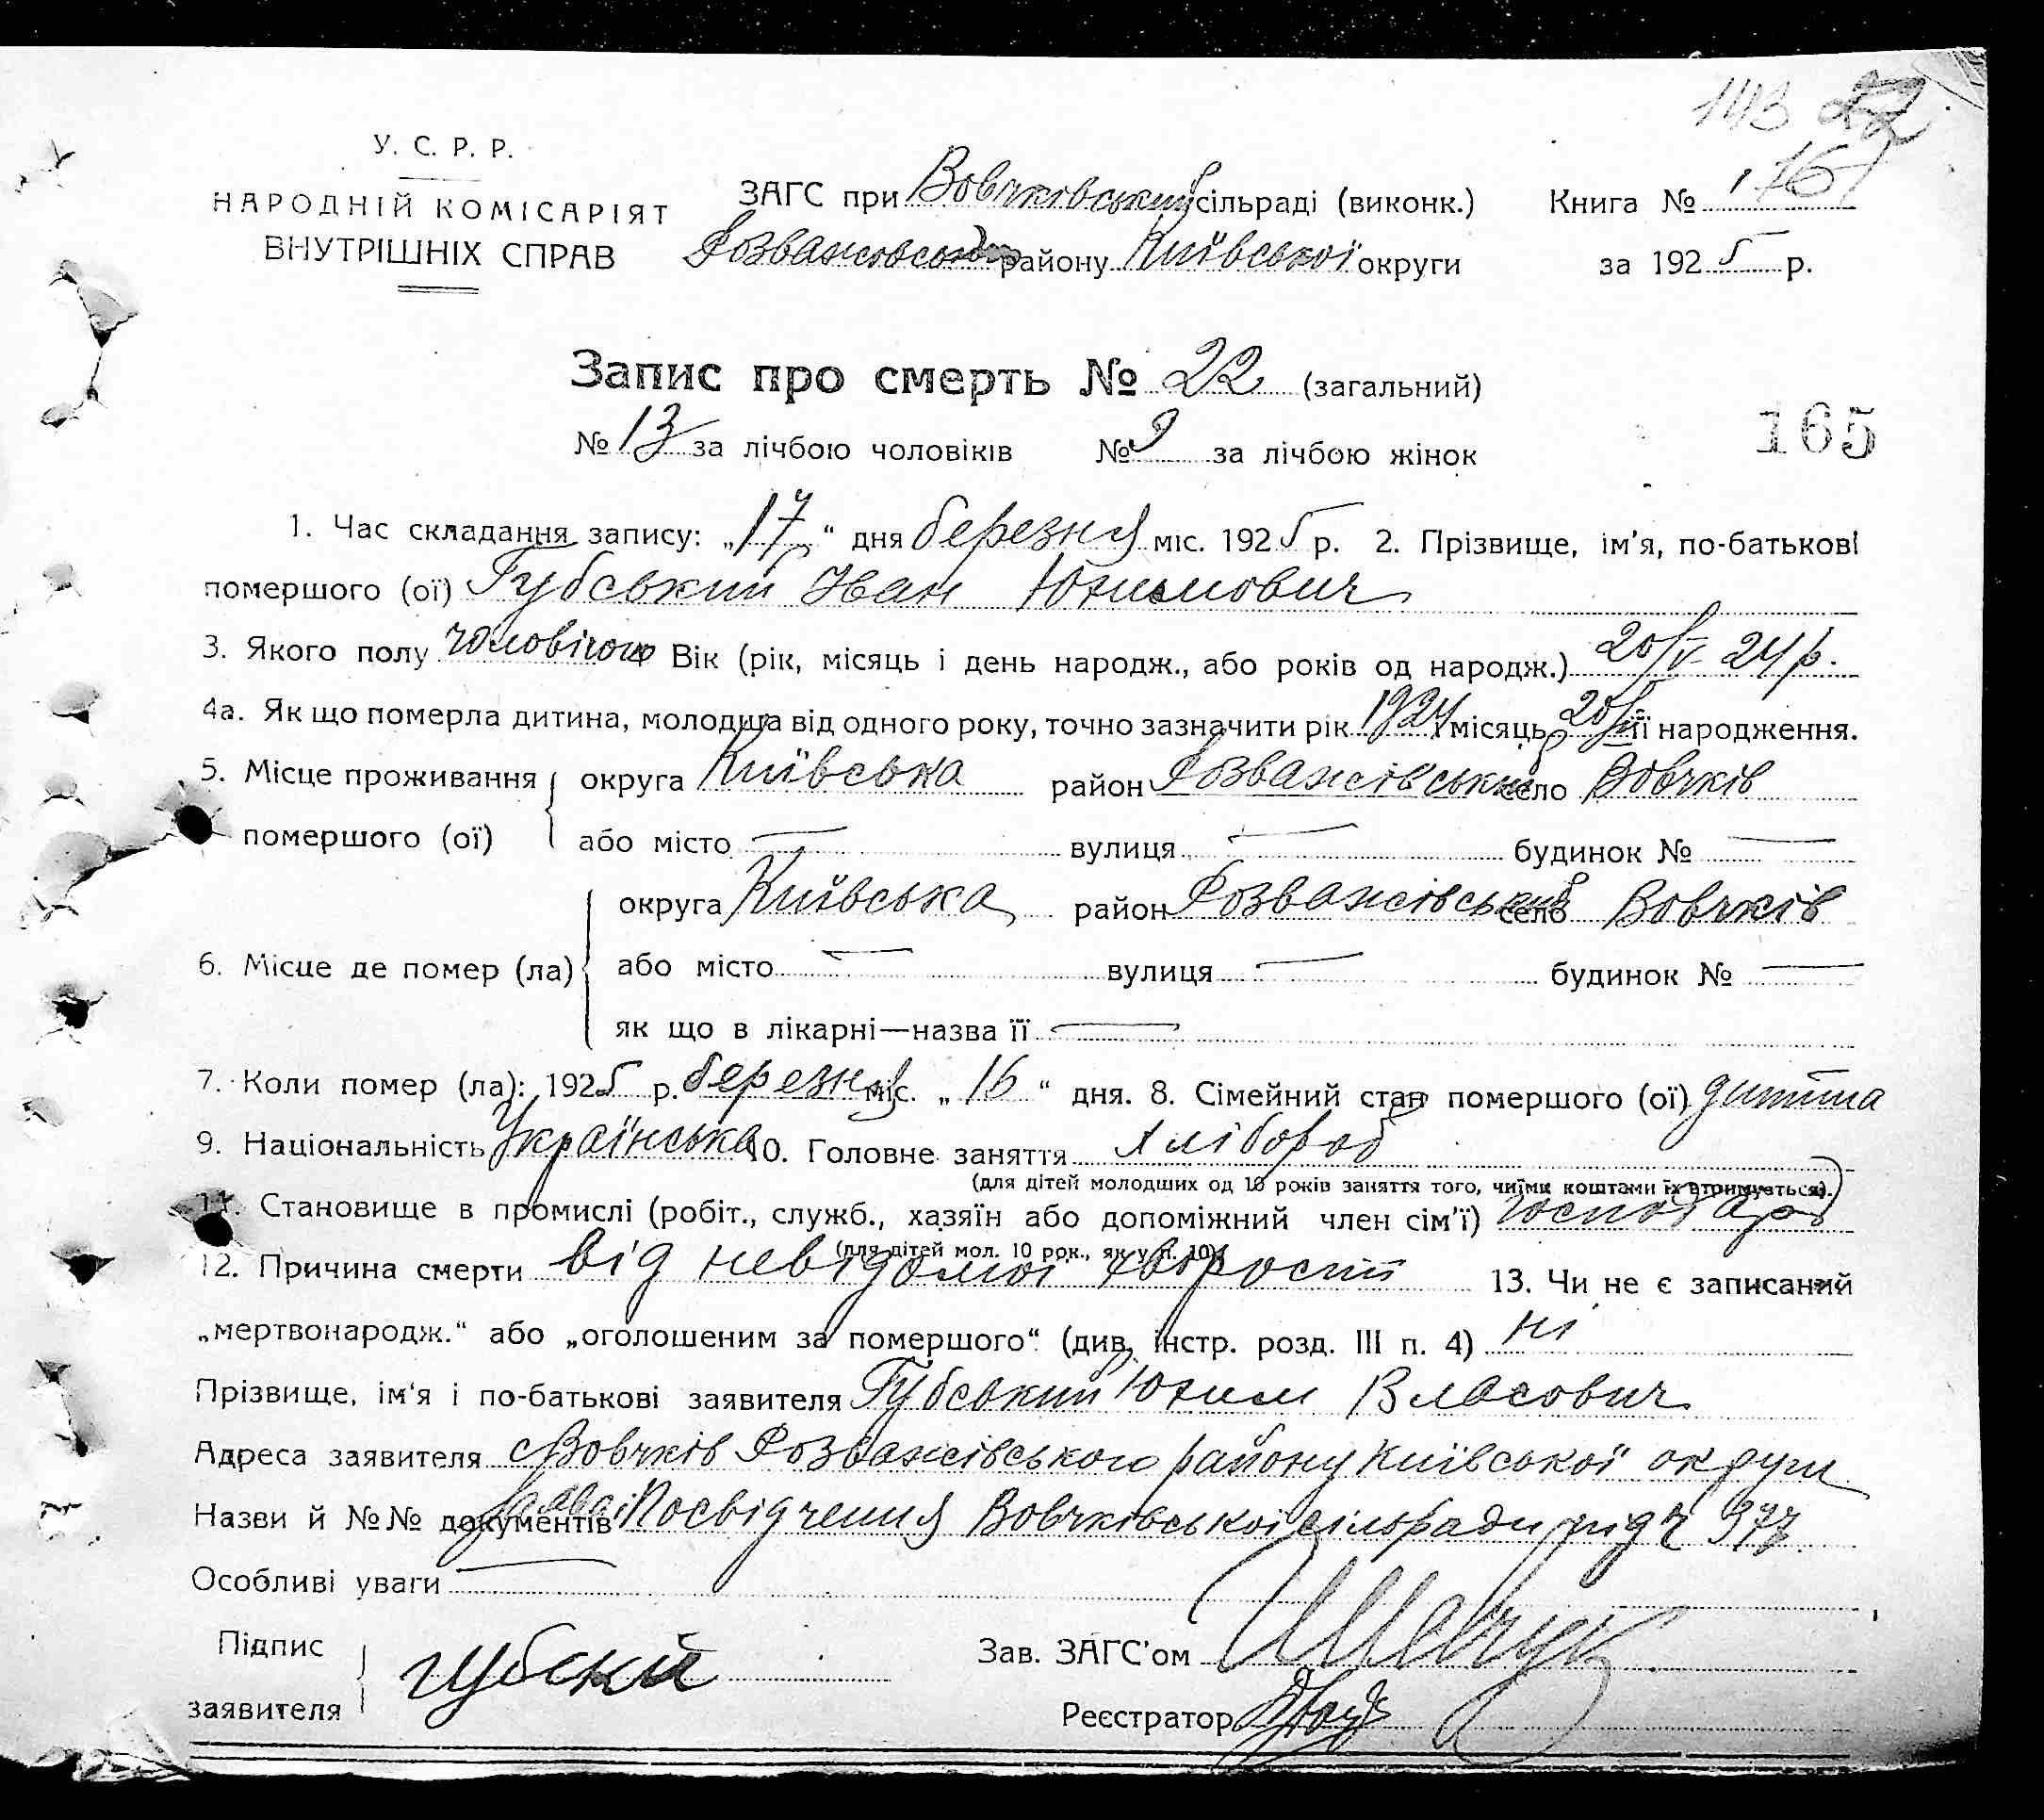 143 22
У. С. Р. Р.
НАРОДНІЙ КОМІСАРІЯТ
ВНУТРІШНІХ СПРАВ
ЗАГС при Вовчківський сільраді (виконк.) Книга №
Розважовського району Київської округи за 1925 р.
Запис про смерть № 22 (загальний)
№ 13 за лічбою чоловіків № 9 за лічбою жінок
165
1. Час складання запису: „17“ дня березня міс. 1925 р. 2. Прізвище, ім'я, по-батькові
помершого (ої) Губський Иван Юхимович
3. Якого полу чоловічого Вік (рік, місяць і день народж., або років од народж.) 20/V 24 р.
4а. Як що померла дитина, молодша від одного року, точно зазначити рік 1924 місяць 20/V її народження.
5. Місце проживання округа Київська район Розважівський село Вовчків
помершого (ої) або місто — вулиця — будинок № —
округа Київська район Розважівський село Вовчків
6. Місце де помер (ла) або місто — вулиця — будинок № —
як що в лікарні—назва її —
7. Коли помер (ла): 1925 р. березня міс. „16“ дня. 8. Сімейний стан помершого (ої) дитина
9. Національність Українська 10. Головне заняття хлібороб
(для дітей молодших од 10 років заняття того, чиїми коштами їх втримується).
11. Становище в промислі (робіт., служб., хазяїн або допоміжний член сім'ї) господарь
(для дітей мол. 10 рок., як у п. 10)
12. Причина смерти від невідомої хворости 13. Чи не є записаний
„мертвонародж.“ або „оголошеним за помершого“ (див. інстр. розд. III п. 4) ні
Прізвище, ім'я і по-батькові заявителя Губський Юхим Власович
Адреса заявителя с Вовчків Розважівського району Київської округи
Назви й №№ документів Заява і Посвідчення Вовчківської сільради під ч 377
Особливі уваги —
Підпис
заявителя губский
Зав. ЗАГС'ом
Реєстратор